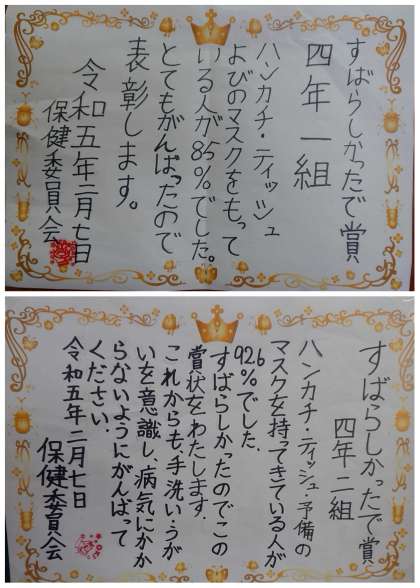 すばらしかったで賞
四年一組
ハンカチ・ティッシュ
よびのマスクをもって
いる人が85%でした。
とてもがんばったので
表彰します。
令和五年二月七日
保健委員会
すばらしかったで賞
四年二組
ハンカチ・ティッシュ・予備の
マスクを持ってきている人が
92.6%でした.
すばらしかったのでこの
賞状をわたします.
これからも手洗い・うが
いを意識し、病気にかか
らないようにがんばって
ください.
令和五年二月七日
保健委員会